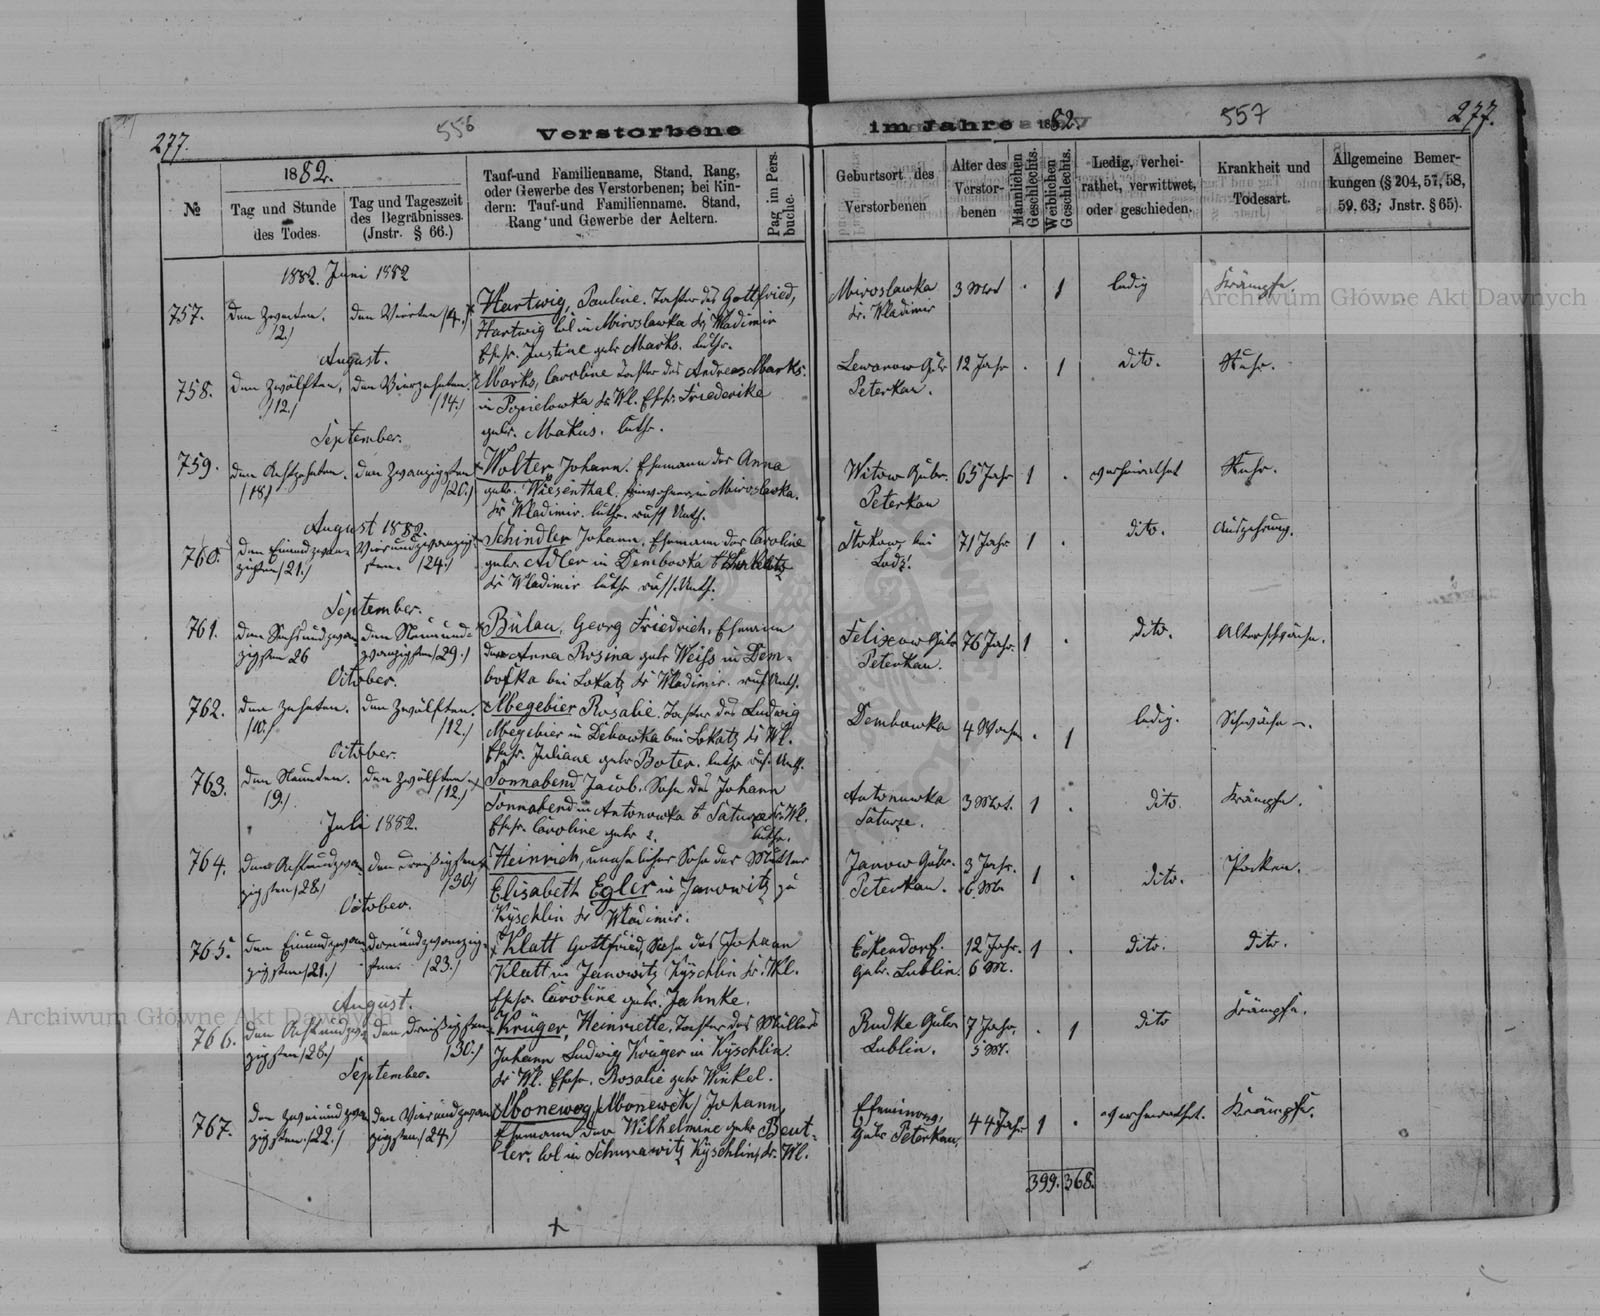 277.
556
Verstorbene
im Jahre 1882.
557
277.
№
1882.
Tag und Stunde des Todes.
Tag und Tageszeit des Begräbnisses. (Jnstr. § 66.)
Tauf-und Familienname, Stand, Rang,
oder Gewerbe des Verstorbenen; bei Kin-
dern: Tauf-und Familienname. Stand,
Rang und Gewerbe der Aeltern.
Pag im Pers. buche.
Geburtsort des Verstorbenen
Alter des Verstor- benen
Männlichen Geschlechts.
Weiblichen Geschlechts.
Ledig, verhei- rathet, verwittwet, oder geschieden.
Krankheit und Todesart.
Allgemeine Bemer- kungen (§ 204, 57, 58, 59, 63; Jnstr. § 65).
1882. Juni 1882
757. den Zweiten. /2./ den Vierten /4./
Hartwig, Pauline. Tochter des Gottfried,
Hartwig Col in Miroslawka Kr Wladimir
Ehfr. Justine geb Marks. luthr.
Miroslawka Kr. Wladimir 3 Mot . 1 ledig Krämpfe.
August.
758. den Zwölften, /12./ den Vierzehnten. /14./
Marks, Caroline Tochter des Andreas Marks.
in Popielowka Kr. Wl. Ehfr. Friederike
gebr. Makus. luthr.
Peterkau. 12 Jahr . 1 dito. Ruhr.
September.
759. den Achtzehnten. /18/ den Zwanzigsten /20./
Wolter Johann. Ehemann der Anna
gebr. Wiesenthal. Einwohner in Miroslawka.
Kr Wladimir. luthr. russ Unth.
Witow Gubr. Peterkau 65 Jahr 1 . verheirathet Ruhr.
August 1882.
760. den Einundzwan- zigsten /21./ Vierundzwanzig- sten /24./
Schindler Johann, Ehemann der Caroline
gebr Adler in Dembowka b Lokatz
Kr Wladimir luthr russ. Unth.
Stokow, bei Lodz. 71 Jahr 1 . dito. Auszehrung.
September.
761. den Sechsundzwan- zigsten 26 den Neunund- zwanzigsten /29./
Bülau, Georg Friedrich, Ehemann
der Anna Rosina gebr Weiss in Dem-
bofka bei Lokatz Kr Wladimir. russ Unth.
Felixow Gubr Peterkau. 76 Jahr. 1 . dito. Altersschwäche.
October.
762. den Zehnten. /10./ den Zwölften. /12./
Megebier Rosalie. Tochter des Ludwig
Megebier in Debowka bei Lokatz Kr Wl.
Ehfr. Juliane gebr Boter. luthr rus. Unth.
Dembowka 4 Woche . 1 ledig. Schwäche.
October.
763. den Neunten. /9./ den Zwölften /12./
Sonnabend Jacob. Sohn des Johann
Sonnabend in Antonowka b Saturze Kr. Wl.
Ehfr. Caroline gebr ?. luthr.
Antonowka Saturze. 3 Mot. 1 . dito. Krämpfe.
Juli 1882.
764. den Achtundzwan zigsten /28/ den Dreißigsten /30/
Heinrich, unehelicher Sohn der Mutter
Elisabeth Egler in Janowitz zu
Kyschlin Kr Wladimir.
Janow Gubr. Peterkau. 3 Jahr. 6 Mo. 1 . dito. Pocken.
October.
765. den Einundzwan zigsten /21./ dreiundzwanzig- sten /23./
Klatt Gottfried, Sohn des Johann
Klatt in Janowitz Kyschlin Kr. Wl.
Ehfr. Caroline gebr. Jahnke.
Eckendorf. Gubr. Lublin. 12 Jahr. 6 M. 1 . dito. dito.
August.
766. den Achtundzwan zigsten /28./ den Dreißigsten /30./
Krüger, Heinriette, Tochter des Müllers
Johann Ludwig Krüger in Kyschlin.
Kr Wl. Ehfr. Rosalie gebr Winkel.
Rudke Gubr Lublin. 7 Jahr. 5 M. . 1 dito Krämpfe.
September.
767. den Zweiundzwan zigsten. /22./ den Vierundzwan zigsten. /24./
Moneweg /Monewck/ Johann,
Ehemann der Wilhelmine gebr Beut-
ler. Col in Schurawitz Kyschlin, Kr. Wl.
Gubr Peterkau, 44 Jahr 1 . verheirathet. Krämpfe.
399. 368.
Archiwum Główne Akt Dawnych
Archiwum Główne Akt Dawnych